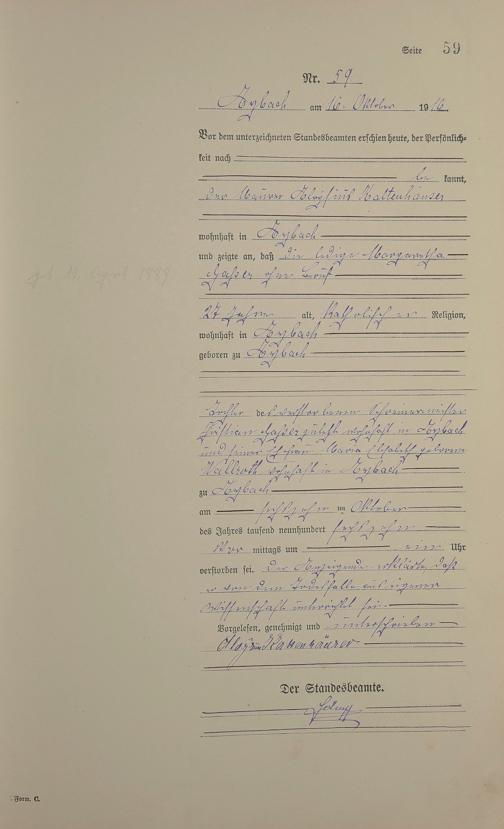 Seite 59
Nr. 59
Aybach am 16. Oktober 1916.
Vor dem unterzeichneten Standesbeamten erschien heute, der Persönlich-
keit nach
be kannt,
der Maurer Aloysius Kattenhäuser
wohnhaft in
und zeigte an, daß die ledige Margaretha
Gasser ohne Beruf
geb. 19. April 1889
27 Jahre alt, katholischer Religion,
wohnhaft in
geboren zu
Tochter des verstorbenen Schreinermeister
Bastian Gasser zuletzt wohnhaft in
und seiner Ehefrau Maria Elisabeth geborene
Wallroth wohnhaft in
zu
am sechszehn ten Oktober
des Jahres tausend neunhundert sechszehn
Vor mittags um ein Uhr
verstorben sei. Der Anzeigende erklärte, daß
er von dem Todesfalle aus eigener
Wissenschaft unterrichtet sei.
Vorgelesen, genehmigt und unterschrieben
Der Standesbeamte.
Form. C.